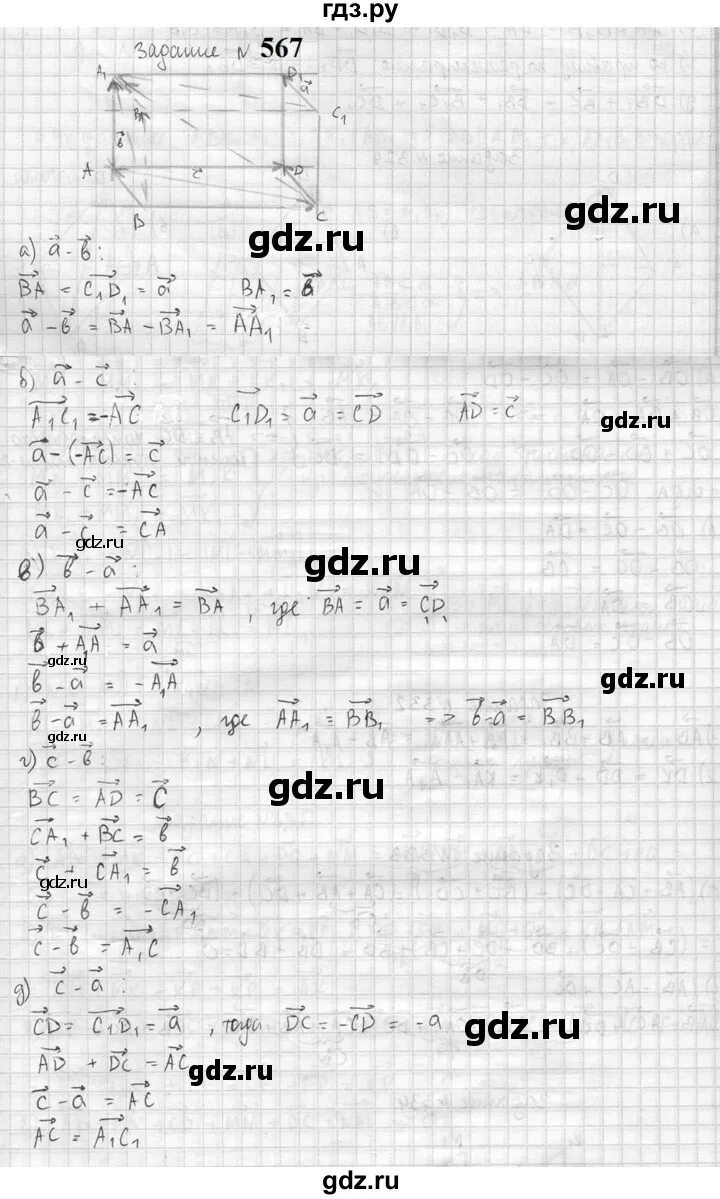 гдз.ру
Задание № 567
A₁ D₁ a⃗
B₁ C₁
b⃗
A c⃗ D
B C
gdz.ru
а) a⃗ - b⃗ :
gdz.ru
BA⃗ = C₁D₁⃗ = a⃗ BA₁ = b⃗
a⃗ - b⃗ = BA⃗ - BA₁⃗ = AA₁⃗
б) a⃗ - c⃗ :
A₁C₁⃗ = -AC⃗ C₁D₁⃗ = a⃗ = CD⃗ AD⃗ = c⃗
gdz.ru
a⃗ - (-AC⃗) = c⃗
a⃗ - c⃗ = -AC⃗
a⃗ - c⃗ = CA⃗
gdz.ru
в) b⃗ - a⃗ :
gdz.ru
BA₁⃗ + AA₁⃗ = BA⃗ , где BA⃗ = a⃗ = C₁D₁⃗
b⃗ + A₁A⃗ = a⃗
gdz.ru
b⃗ - a⃗ = -A₁A⃗
gdz.ru
b⃗ - a⃗ = AA₁⃗ , где AA₁⃗ = BB₁⃗ => b⃗ - a⃗ = BB₁⃗
gdz.ru
г) c⃗ - b⃗ :
BC⃗ = AD⃗ = c⃗
gdz.ru
CA₁⃗ + BC⃗ = b⃗
c⃗ + CA₁⃗ = b⃗
gdz.ru
c⃗ - b⃗ = -CA₁⃗
gdz.ru
c⃗ - b⃗ = A₁C⃗
д) c⃗ - a⃗ :
CD⃗ = C₁D₁⃗ = a⃗ , тогда DC⃗ = -CD⃗ = -a
gdz.ru
AD⃗ + DC⃗ = AC⃗
gdz.ru
c⃗ - a⃗ = AC⃗
AC⃗ = A₁C₁⃗
gdz.ru